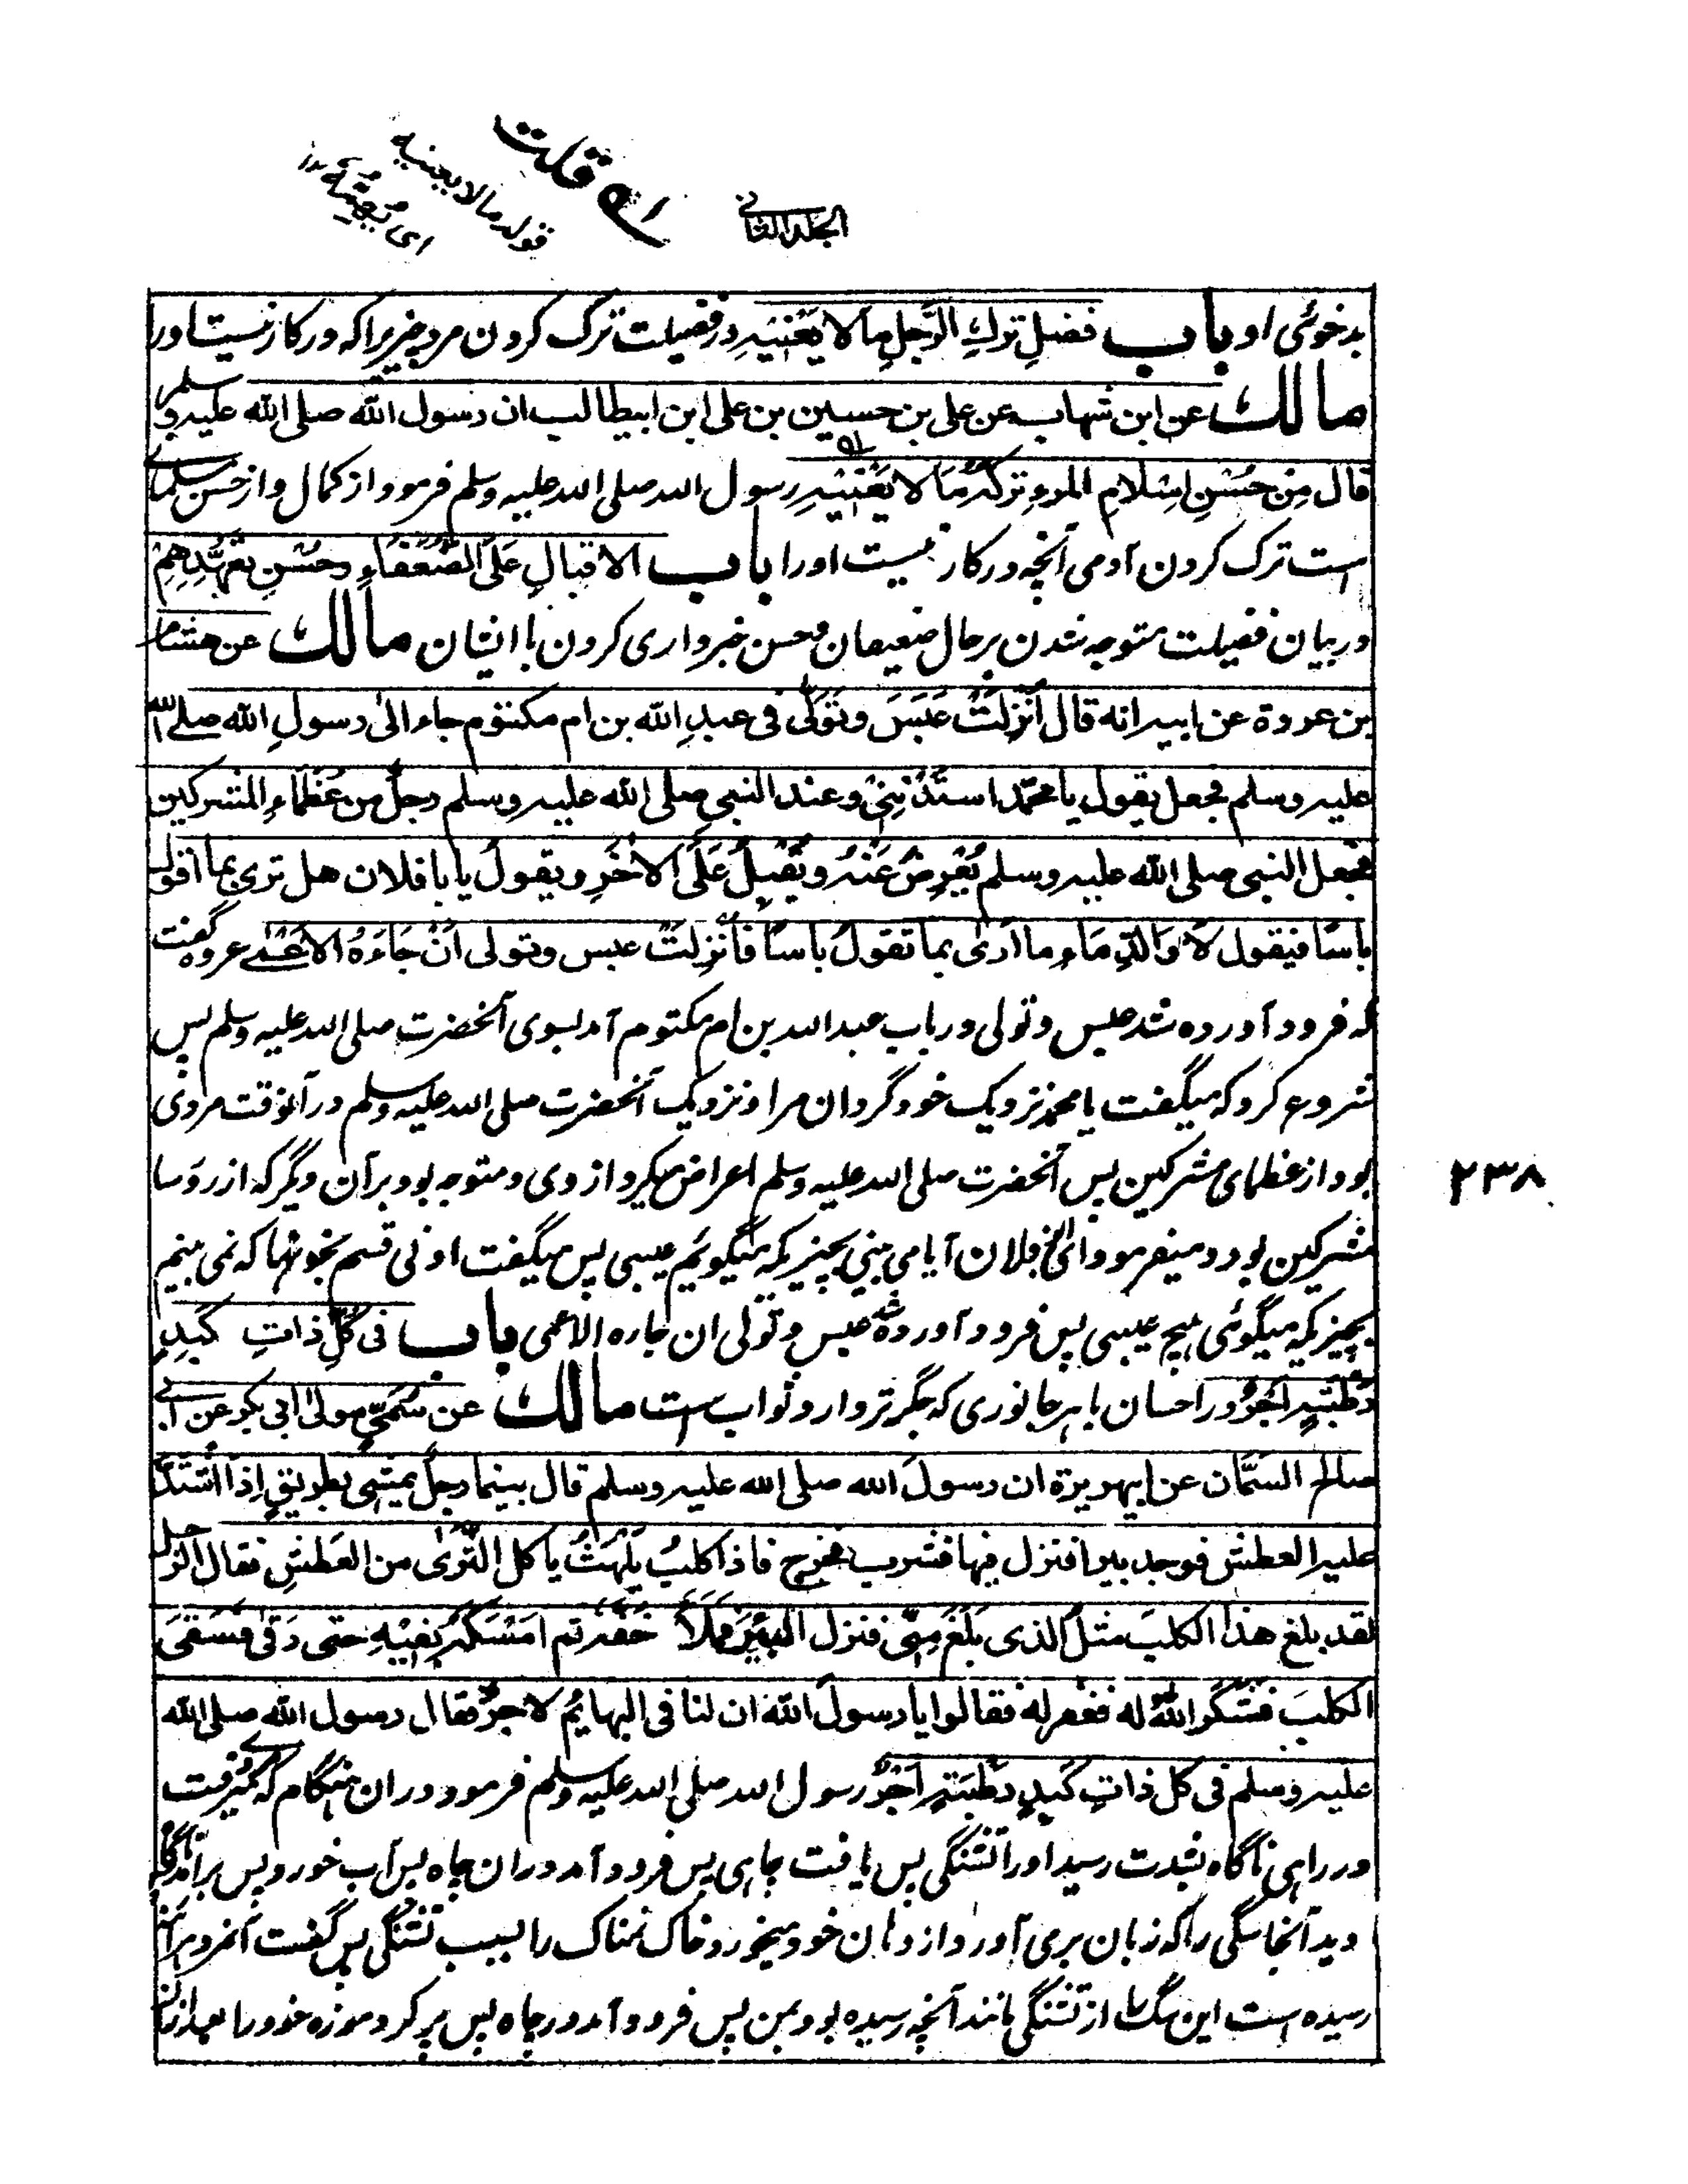 الجلد الثانی
۱؎ قلت
قوله مالا یعنیه
ای
بدخوئی او باب فضلِ تركِ الرَّجلِ ما لا یَعْنیْهِ در فضیلت ترک کردن مرد چیزیرا که درکار نیست اورا
مالك عن ابن شهاب عن علی بن حسین بن علی ابن ابیطالب ان رسول الله صلی الله علیه وسلم
قال مِن حُسْنِ اِسْلامِ المرءِ ترکُهُ مَا لا یَعْنِیْهِ رسول الله صلی الله علیه وسلم فرمود از کمال و از حسن اسلام
است ترک کردن آدمی آنچه درکار نیست اورا باب الاقبالِ عَلَی الضُّعَفَاءِ وحُسْنِ تَعَهُّدِهِمْ
در بیان فضیلت متوجه شدن بر حال ضعیفان و حسن خبرداری کردن با ایشان مالك عن هشام
بن عروة عن ابیه انه قال اُنْزِلَتْ عَبَسَ وتَوَلّٰی فی عبدِ الله بن ام مکتوم جاء الیٰ رسولِ الله صلی الله
علیه وسلم فجعل یقول یا محمّد استَدْنِنِیْ وعند النبی صلی الله علیه وسلم رجلٌ من عُظَمَاءِ المشرکین
فجعل النبی صلی الله علیه وسلم یُعْرِضُ عَنْهُ ویُقْبِلُ عَلَی الاٰخَرِ ویقولُ یا بافلان هل تریٰ بما اقول
باسًا فیقول لَا وَالدِّمَاءِ ما اَریٰ بما تقولُ باسًا فاُنْزِلَتْ عبس وتولی اَنْ جَاءَهُ الاَعْمٰی عروه گفت
که فرود آورده شد عبس وتولی در باب عبد الله بن ام مکتوم آمد بسوی آنحضرت صلی الله علیه وسلم پس
شروع کرد که میگفت یا محمد نزدیک خود گردان مرا و نزدیک آنحضرت صلی الله علیه وسلم در آنوقت مردی
بود از عظمای مشرکین پس آنحضرت صلی الله علیه وسلم اعراض میکرد از وی و متوجه بود بر آن دیگر که از روسا
مشرکین بود و میفرمود ای فلان آیا می بینی بچیزیکه میگویم عیبی پس میگفت او نی قسم بخونها که نمی بینم
بچیزیکه میگوئی هیچ عیبی پس فرود آورده شد عبس وتولی ان جاءه الاعمی باب فی کلِّ ذاتِ کَبِدٍ
رَطْبَتٍ اَجْرٌ در احسان با هر جانوری که جگر تر دارد ثواب است مالك عن سُمَیٍّ مولیٰ ابی بکر عن ابی
صالح السَّمَّان عن ابیهریرة ان رسولَ الله صلی الله علیه وسلم قال بینما رجلٌ یمشی بطریقٍ اِذا اشْتَدَّ
علیه العطش فوجد بیرا فنزل فیها فشرب فخرج فاذا کلبٌ یَلْهَثُ یاکل الثَّرٰی من العَطَشِ فقال الرجل
لقد بلغ هذا الکلبَ مثلُ الذی بَلَغَ مِنِّی فنزل البِیْرَ فمَلَأَ خُفَّهُ ثم امْسَکَهُ بِفِیْهِ حتی رَقٰی فَسَقٰی
الکلبَ فشکَرَ اللهُ له فغفر له فقالوا یا رسولَ الله ان لنا فی البهایُمِ لاجرٌ فقال رسول الله صلی الله
علیه وسلم فی کل ذاتِ کَبِدٍ رَطْبَتٍ اَجْرٌ رسول الله صلی الله علیه وسلم فرمود در ان هنگام که مردی میرفت
در راهی ناگاه بشدت رسید اورا تشنگی پس یافت چاهی پس فرود آمد در ان چاه پس آب خورد پس برآمد ناگاه
دید آنجا سگی را که زبان بر می آورد از دهان خود و میخورد خاک نمناک را بسبب تشنگی پس گفت آنمرد هر آئینه
رسیده است این سگ را از تشنگی مانند آنچه رسیده بود بمن پس فرود آمد در چاه پس پر کرد موزه خود را بعد ازان
۲۳۸